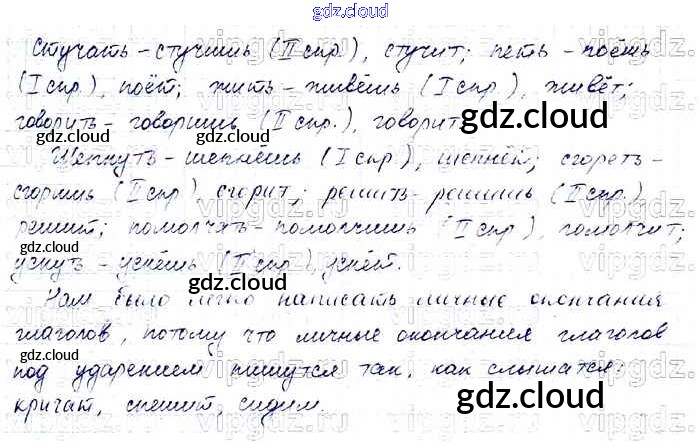 gdz.cloud
Стучать – стучишь (II спр.), стучит; петь – поёшь
(I спр.), поёт; жить – живёшь (I спр.), живёт;
говорить – говоришь (II спр.), говорит.
Шепнуть – шепнёшь (I спр.), шепнёт; сгореть –
сгоришь (II спр.) сгорит; решить – решишь (II спр.)
решит; помолчать – помолчишь (II спр.), помолчит;
уснуть – уснёшь (II спр.), уснёт.
Нам было легко написать личные окончания
глаголов, потому что личные окончания глаголов
под ударением пишутся так, как слышатся:
кричат, спешит, сидим
gdz.cloud
gdz.cloud
gdz.cloud
gdz.cloud
gdz.cloud
gdz.cloud
gdz.cloud
gdz.cloud
gdz.cloud
vipgdz.ru